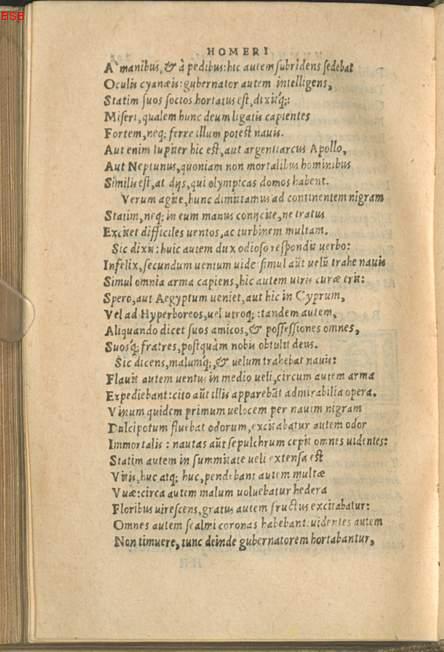 BSB
HOMERI
A manibus, & à pedibus: hic autem subridens sedebat
Oculis cyanæis: gubernator autem intelligens,
Statim suos socios hortatus est, dixitq;:
Miseri, qualem hunc deum ligatis capientes
Fortem, neq; ferre illum potest nauis.
Aut enim Iupiter hic est, aut argentiarcus Apollo,
Aut Neptunus, quoniam non mortalibus hominibus
Similis est, at dijs, qui olympicas domos habent.
Verum agite, hunc dimittamus ad continentem nigram
Statim, neq; in eum manus conijcite, ne iratus
Excitet difficiles uentos, ac turbinem multam.
Sic dixit: huic autem dux odioso respondit uerbo:
Infelix, secundum uentum uide: simul aũt uelũ trahe nauis
Simul omnia arma capiens, hic autem uiris curæ erit:
Spero, aut Aegyptum ueniet, aut hic in Cyprum,
Vel ad Hyperboreos, uel utroq;: tandem autem,
Aliquando dicet suos amicos, & possessiones omnes,
Suosq; fratres, postquam nobis obtulit deus.
Sic dicens, malumq;, & uelum trahebat nauis:
Flauit autem uentus in medio ueli, circum autem arma
Expediebant: cito aũt illis apparebãt admirabilia opera.
Vinum quidem primum uelocem per nauim nigram
Dulcipotum fluebat odorum, excitabatur autem odor
Immortalis: nautas aũt sepulchrum cepit omnes uidentes:
Statim autem in summitate ueli extensa est
Vitis, huc atq; huc, pendebant autem multæ
Vuæ: circa autem malum uoluebatur hedera
Floribus uirescens, gratus autem fructus excitabatur:
Omnes autem scalmi coronas habebant: uidentes autem
Non timuere, tunc deinde gubernatorem hortabantur,